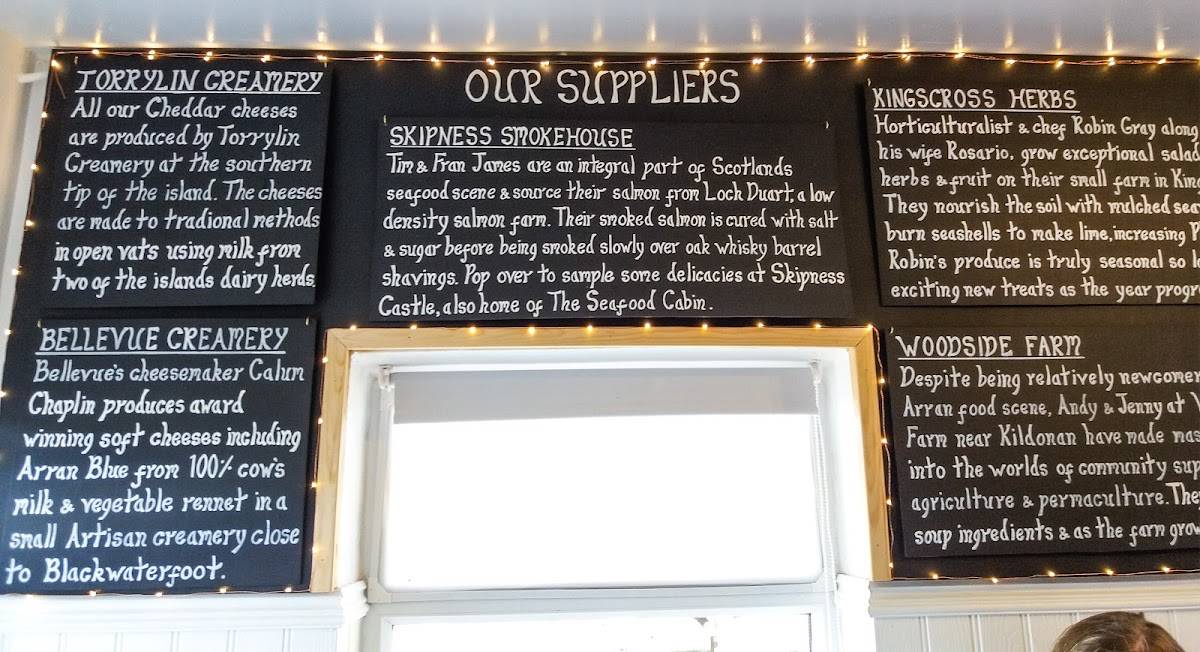 OUR SUPPLIERS
TORRYLIN CREAMERY
All our Cheddar cheeses
are produced by Torrylin
Creamery at the southern
tip of the island. The cheeses
are made to tradional methods
in open vats using milk from
two of the islands dairy herds.
BELLEVUE CREAMERY
Bellevue's cheesemaker Calum
Chaplin produces award
winning soft cheeses including
Arran Blue from 100% cow's
milk & vegetable rennet in a
small Artisan creamery close
to Blackwaterfoot.
SKIPNESS SMOKEHOUSE
Tim & Fran James are an integral part of Scotlands
seafood scene & source their salmon from Loch Duart, a low
density salmon farm. Their smoked salmon is cured with salt
& sugar before being smoked slowly over oak whisky barrel
shavings. Pop over to sample some delicacies at Skipness
Castle, also home of The Seafood Cabin.
KINGSCROSS HERBS
Horticulturalist & chef Robin Gray along
his wife Rosario, grow exceptional salad
herbs & fruit on their small farm in
They nourish the soil with mulched
burn seashells to make lime, increasing
Robin's produce is truly seasonal so
exciting new treats as the year
WOODSIDE FARM
Despite being relatively
Arran food scene, Andy & Jenny at
Farm near Kildonan have made
into the worlds of community
agriculture & permaculture.
soup ingredients & as the farm